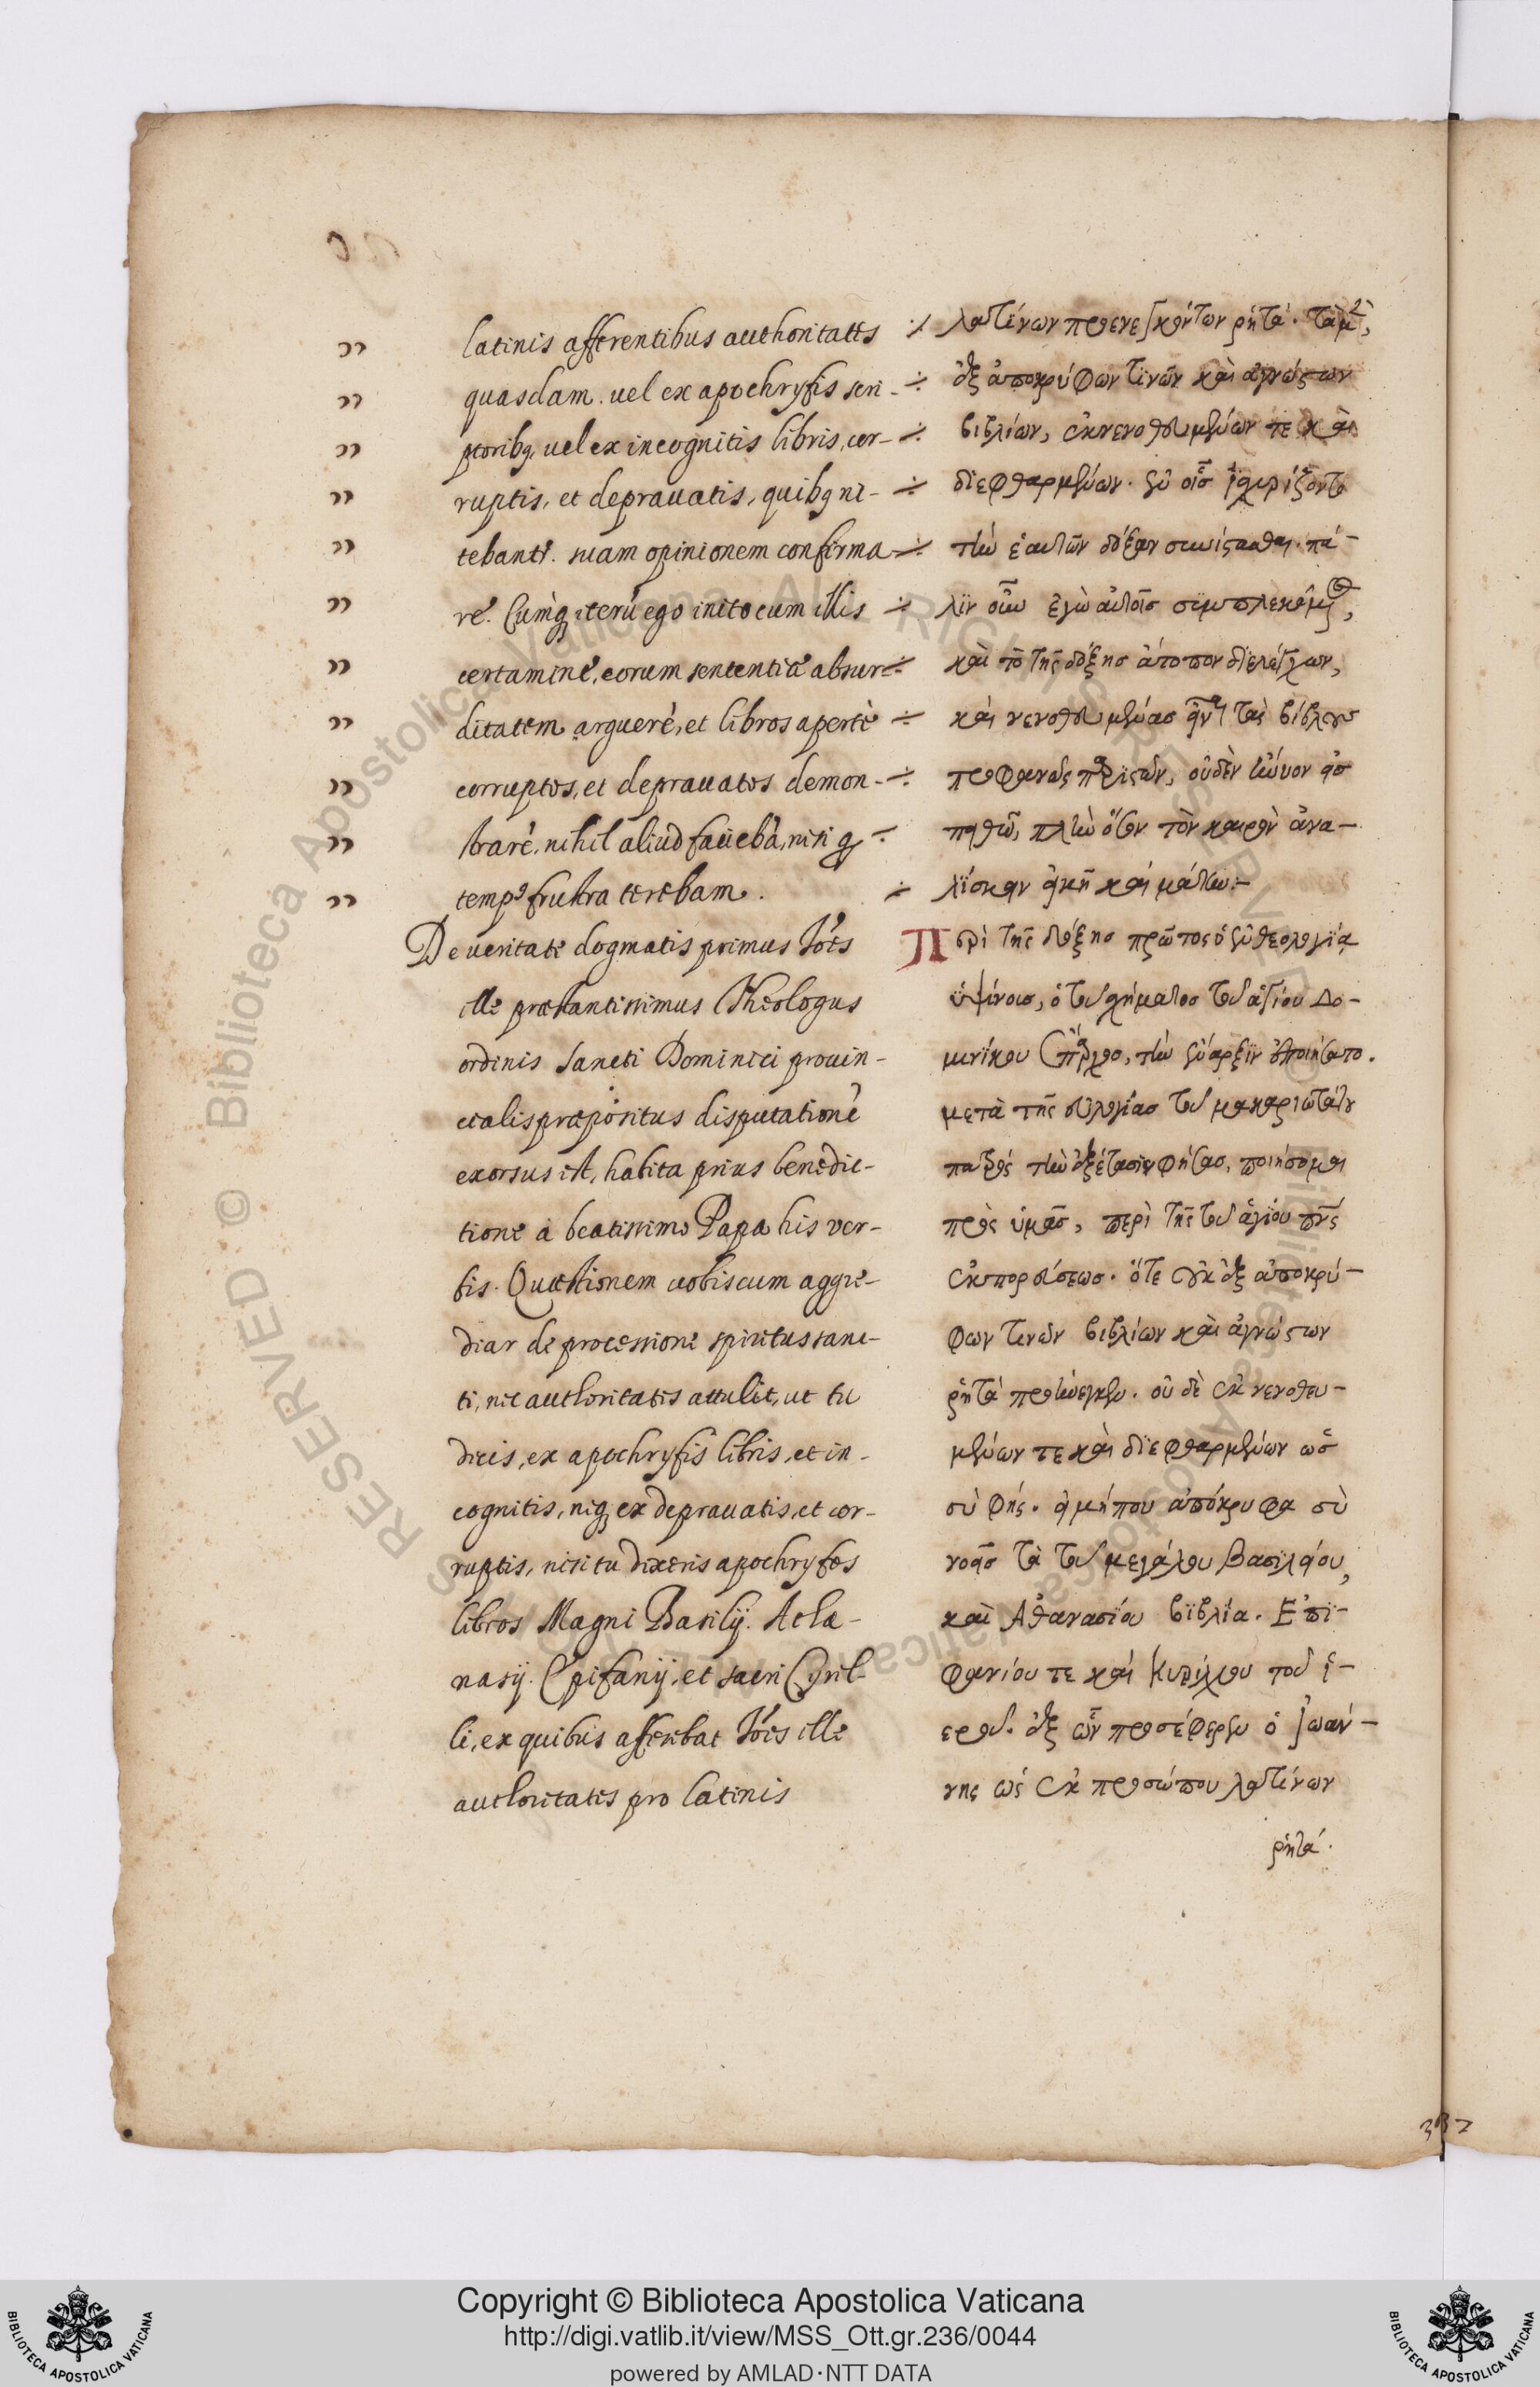 latinis afferentibus authoritates
quasdam. uel ex apochryfis scri-
ptoribꝫ, uel ex incognitis libris, cor-
ruptis, et deprauatis, quibꝫ ni-
tebantr. suam opinionem confirma-
re. Cumqꝫ iterū ego inito cum illis
certamine, eorum sententiæ absur-
ditatem arguere, et libros aperte
corruptos, et deprauatos demon-
strare, nihil aliud
temp9 frustra terebam.
De ueritate dogmatis primus Iōēs
ille præstantissimus Theologus
ordinis Sancti Dominici prouin-
cialis præpositus disputatione
exorsus est, habita prius benedic-
tione a beatissimo Papa his ver-
bis. Quæstionem uobiscum aggre-
diar de processione spiritus sanc-
ti, nec authoritates attulit, ut tu
dicis, ex apochryfis libris, et in-
cognitis, neqꝫ ex deprauatis, et cor-
ruptis, nisi tu dixeris apochryfos
libros Magni Basilij. Atha-
nasij. Epifanij. et sacri Cyril-
li, ex quibus afferebat Iōēs ille
authoritates pro latinis
λατίνων προενεγκόντων ρητά. τὰ μ̀,
ἐξ ἀποκρύφων τϊνῶν καὶ ἀγνώστων
βιβλίων, ἐκ νενοθευμένων τε καὶ
δϊεφθαρμένων. ἐν οἷσ
τὴν ἑαυτῶν δόξαν συνίστασθαι. πά-
λϊν οὖν ἐγὼ αὐτοῖσ συμπλεκόμενος,
καὶ τὸ τῆς δόξησ ἄτοπον δϊελέγχων,
καὶ νενοθευμένασ εἶναι τὰς βίβλους
προφανῶς παριστῶν, οὐδὲν
πλὴν ὅσον τὸν καιρὸν ἀνα-
λίσκειν εἰκῆ καὶ μάτην:-
Περὶ τῆς δόξησ πρῶτος ὁ ἐν θεολογϊία
ὑψίνουσ, ὁ τοῦ σχήματοσ τοῦ ἁγίου Δο-
μινίκου ἔπαρχοσ, τὴν ἔναρξϊν ἐποιήσατο.
μετὰ τῆς εὐλογίασ τοῦ μακαριωτάτου
πατρός τὴν ἐξέτασϊν φήσασ, ποιήσομαι
πρὸς ὑμᾶσ, περὶ τῆς τοῦ ἁγίου πνς
ἐκπορεύσεωσ. ὅτε οὐκ ἐξ ἀποκρύ-
φων τινῶν βιβλίων καὶ ἀγνώστων
ρητά προήνεγκεν. οὐ δὲ ἐκ νενοθευ-
μένων τε καὶ δϊεφθαρμένων ὡσ
σὺ φής. εἰ μήπου ἀπόκρυφα σὺ
νοεῖσ τὰ τοῦ μεγάλου βασιλείου,
καὶ Ἀθανασίου βϊβλία. Ἐπϊ-
φανίου τε καὶ Κυρίλλου τοῦ ἱ-
εροῦ. ἐξ ὧν προσέφερεν ὁ ἰωάν-
νης ὡς ἐκ προσώπου λατίνων
ρητά.
Copyright © Biblioteca Apostolica Vaticana
http://digi.vatlib.it/view/MSS_Ott.gr.236/0044
powered by AMLAD·NTT DATA
BIBLIOTECA APOSTOLICA VATICANA
BIBLIOTECA APOSTOLICA VATICANA